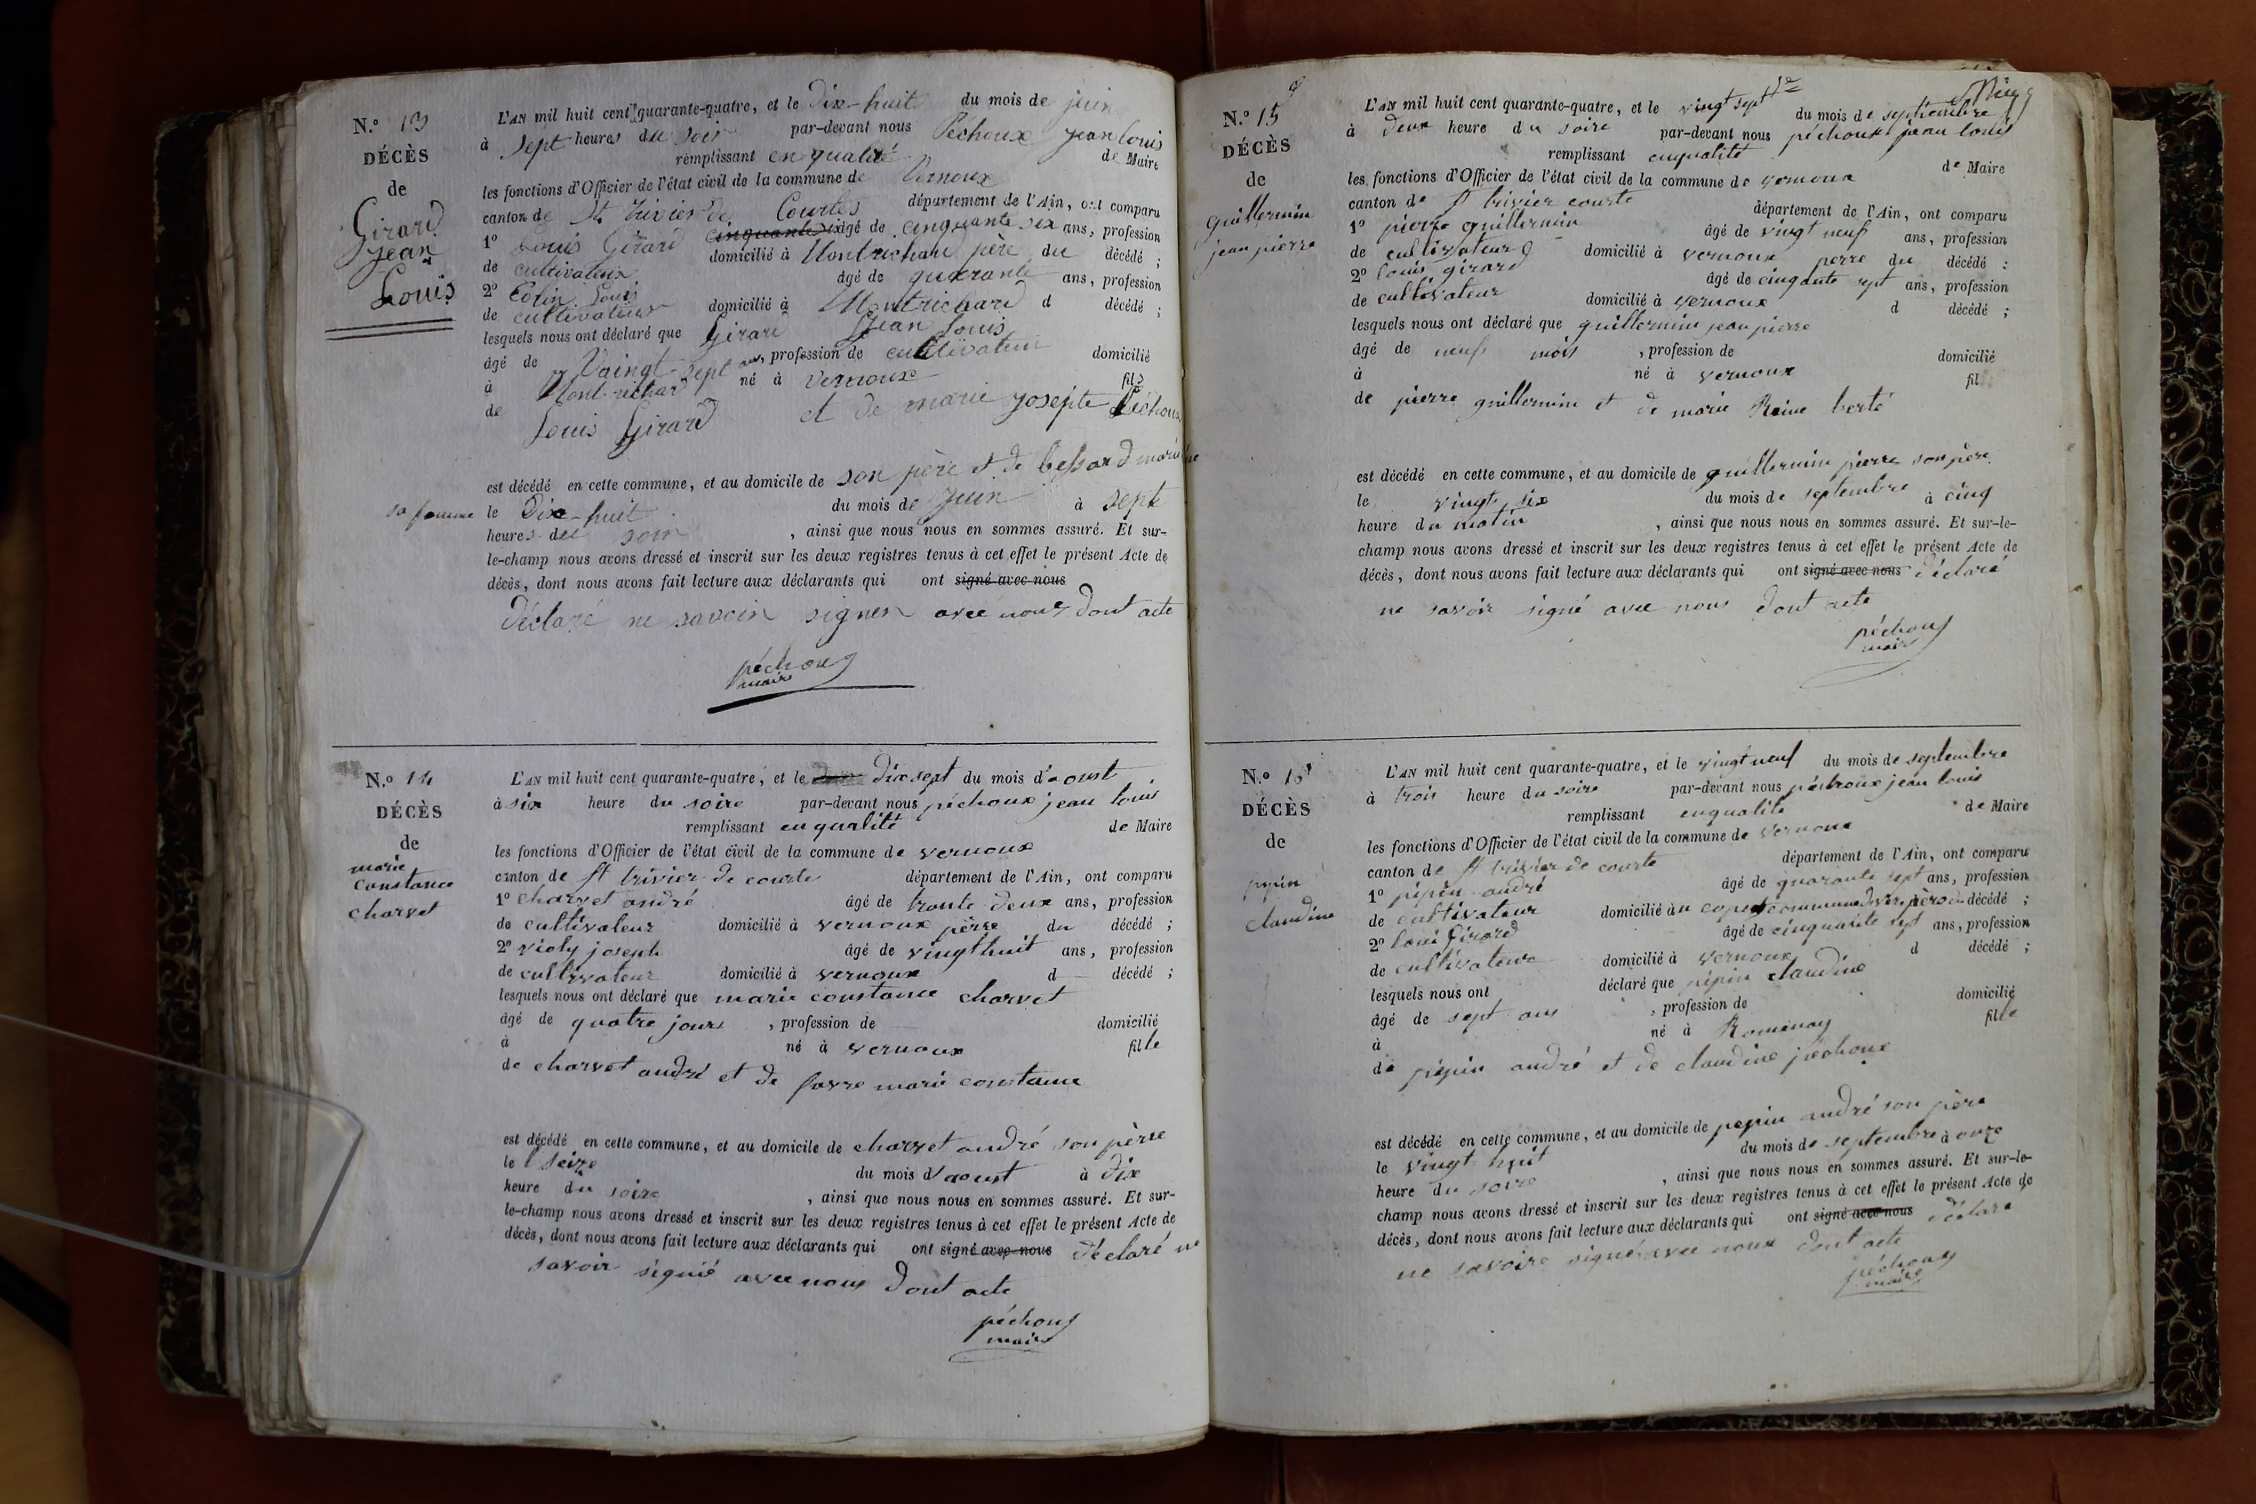 N.o 13
DÉCÈS
de
Girard
Jean
Louis
L'AN mil huit cent quarante-quatre, et le Dix-huit du mois de juin
à sept heures du soir par-devant nous Péchoux jean louis
remplissant en qualité de Maire
les fonctions d'Officier de l'état civil de la commune de Vernoux
canton de St Trivier de Courtes département de l'Ain, ont comparu
1o Louis Girard âgé de cinquante six ans, profession
de cultivateur domicilié à Montrichard père du décédé ;
2o Colin Louis âgé de quarante ans, profession
de cultivateur domicilié à Montrichard d décédé ;
lesquels nous ont déclaré que Girard Jean Louis
âgé de Vaingt-sept ans, profession de cultivateur domicilié
à Mont-richard né à vernoux fils
de Louis Girard et de marie josepte Péchoux
est décédé en cette commune, et au domicile de son père et de bessard marie
sa femme le Dix-huit du mois de Juin à sept
heures du soir, ainsi que nous nous en sommes assuré. Et sur-
le-champ nous avons dressé et inscrit sur les deux registres tenus à cet effet le présent Acte de
décès, dont nous avons fait lecture aux déclarants qui ont signé avec nous
Déclaré ne savoir signer avec nous Dont acte
péchoux
maire
N.o 14
DÉCÈS
de
marie
constance
charvet
L'AN mil huit cent quarante-quatre, et le dix sept du mois d'aoust
à six heure du soire par-devant nous péchoux jean louis
remplissant en qualité de Maire
les fonctions d'Officier de l'état civil de la commune de vernoux
canton de st trivier de courte département de l'Ain, ont comparu
1o charvet andré âgé de trante deux ans, profession
de cultivateur domicilié à vernoux pèrre du décédé ;
2o violy joseph âgé de vingt huit ans, profession
de cultivateur domicilié à vernoux d décédé ;
lesquels nous ont déclaré que marie constance charvet
âgé de quatre jours, profession de domicilié
à né à vernoux fille
de charvet andré et de favre marie constance
est décédé en cette commune, et au domicile de charvet andré son pèrre
le seize du mois d'aoust à dix
heure du soire, ainsi que nous nous en sommes assuré. Et sur-
le-champ nous avons dressé et inscrit sur les deux registres tenus à cet effet le présent Acte de
décès, dont nous avons fait lecture aux déclarants qui ont signé avec nous déclaré ne
savoir signié avec nous Dont acte
péchoux
maire
N.o 15
DÉCÈS
de
guillermin
jean pierre
L'AN mil huit cent quarante-quatre, et le vingt sept du mois de septembre
à deux heure du soire par-devant nous péchoux jean louis
remplissant enqualité de Maire
les fonctions d'Officier de l'état civil de la commune de vernoux
canton de st trivier courte département de l'Ain, ont comparu
1o pierre guillermin âgé de vingt neuf ans, profession
de cultivateur domicilié à vernoux perre du décédé ;
2o louis girard âgé de cinqante sept ans, profession
de cultivateur domicilié à vernoux d décédé ;
lesquels nous ont déclaré que guillermin jean pierre
âgé de neuf mois, profession de domicilié
à né à vernoux fil
de pierre guillermin et de marie Reine berté
est décédé en cette commune, et au domicile de guillermin pierre son père
le vingt six du mois de septembre à cinq
heure du matin, ainsi que nous nous en sommes assuré. Et sur-le-
champ nous avons dressé et inscrit sur les deux registres tenus à cet effet le présent Acte de
décès, dont nous avons fait lecture aux déclarants qui ont signé avec nous déclaré
ne savoir signé avec nous Dont acte
péchoux
maire
N.o 16
DÉCÈS
de
pepin
claudine
L'AN mil huit cent quarante-quatre, et le vingt neuf du mois de septembre
à trois heure du soire par-devant nous péchoux jean louis
remplissant enqualité de Maire
les fonctions d'Officier de l'état civil de la commune de vernoux
canton de st trivier de courte département de l'Ain, ont comparu
1o pépin andré âgé de quarante sept ans, profession
de cultivateur domicilié à commune père décédé ;
2o loui Girard âgé de cinquante sept ans, profession
de cultivateur domicilié à vernoux d décédé ;
lesquels nous ont déclaré que pépin claudine
âgé de sept ans, profession de domicilié
à né à Romenay fille
de pépin andré et de claudine péchoux
est décédé en cette commune, et au domicile de pepin andré son père
le vingt huit du mois de septembre à onze
heure du soire, ainsi que nous nous en sommes assuré. Et sur-le-
champ nous avons dressé et inscrit sur les deux registres tenus à cet effet le présent Acte de
décès, dont nous avons fait lecture aux déclarants qui ont signé avec nous déclaré
ne savoire signé avec nous dont acte
péchoux
maire